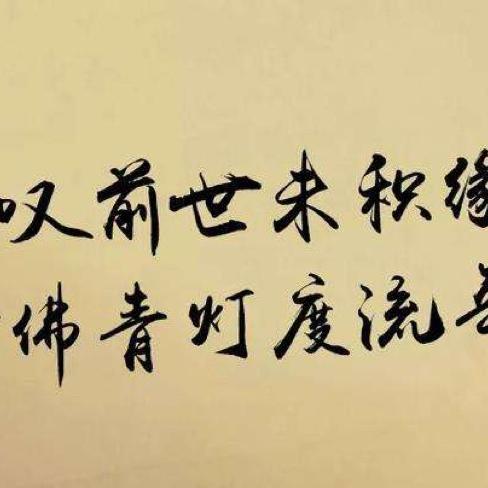 叹前世未积缘
佛青灯度流